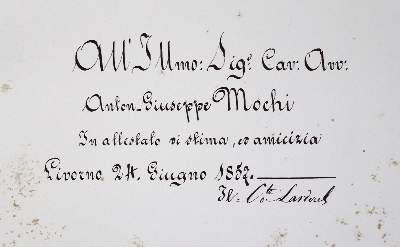 All'Illmo: Sigr. Cav: Avv:
Anton-Giuseppe Mochi
In attestato di stima, ed amicizia
Livorno 24. Giugno 1852.
Il Cte